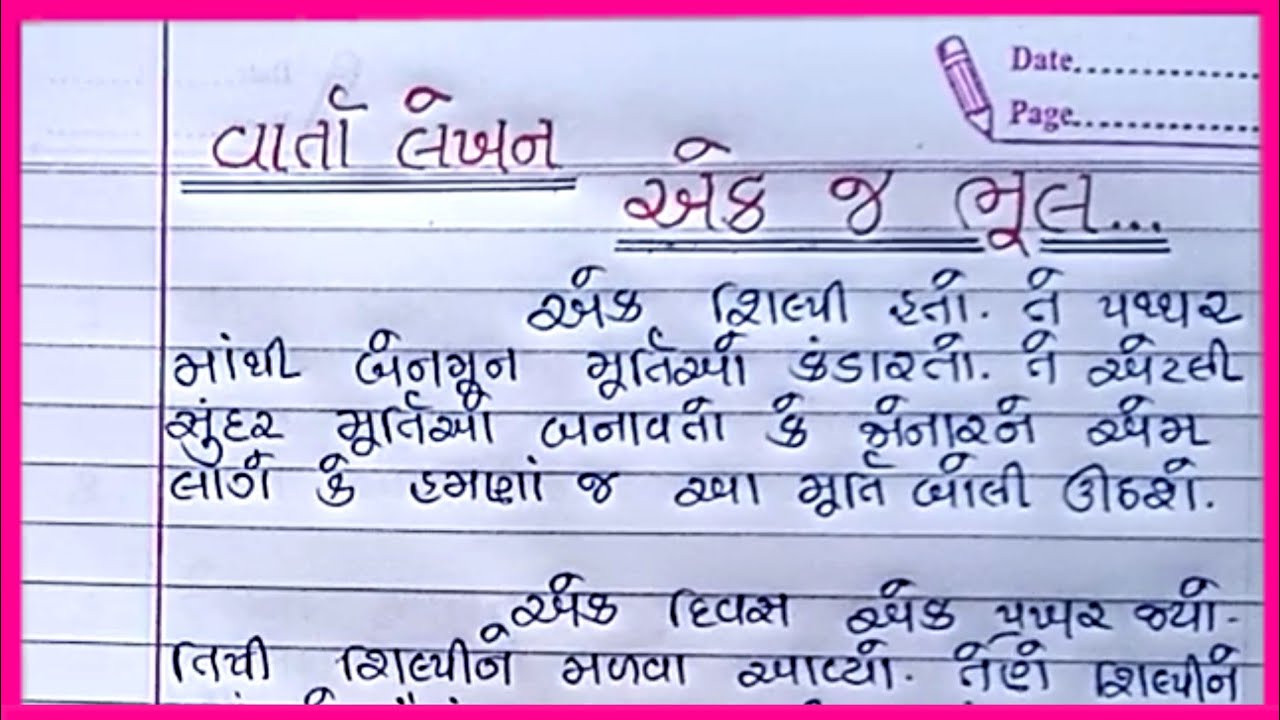 Date..................
Page..................
વાર્તા લેખન
એક જ ભૂલ...
એક શિલ્પી હતો. તે પથ્થર
માંથી બેનમૂન મૂર્તિઓ કંડારતો. તે એટલી
સુંદર મૂર્તિઓ બનાવતો કે જોનારને એમ
લાગે કે હમણાં જ આ મૂર્તિ બોલી ઊઠશે.
એક દિવસ એક પ્રખર જ્યો-
તિષી શિલ્પીને મળવા આવ્યો. તેણે શિલ્પીને